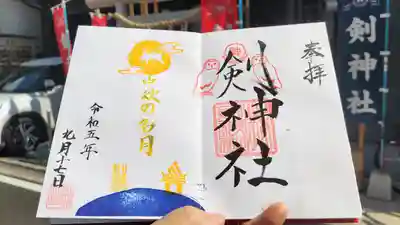 奉拝
剣神社
中秋の名月
令和五年
九月十七日
剣神社